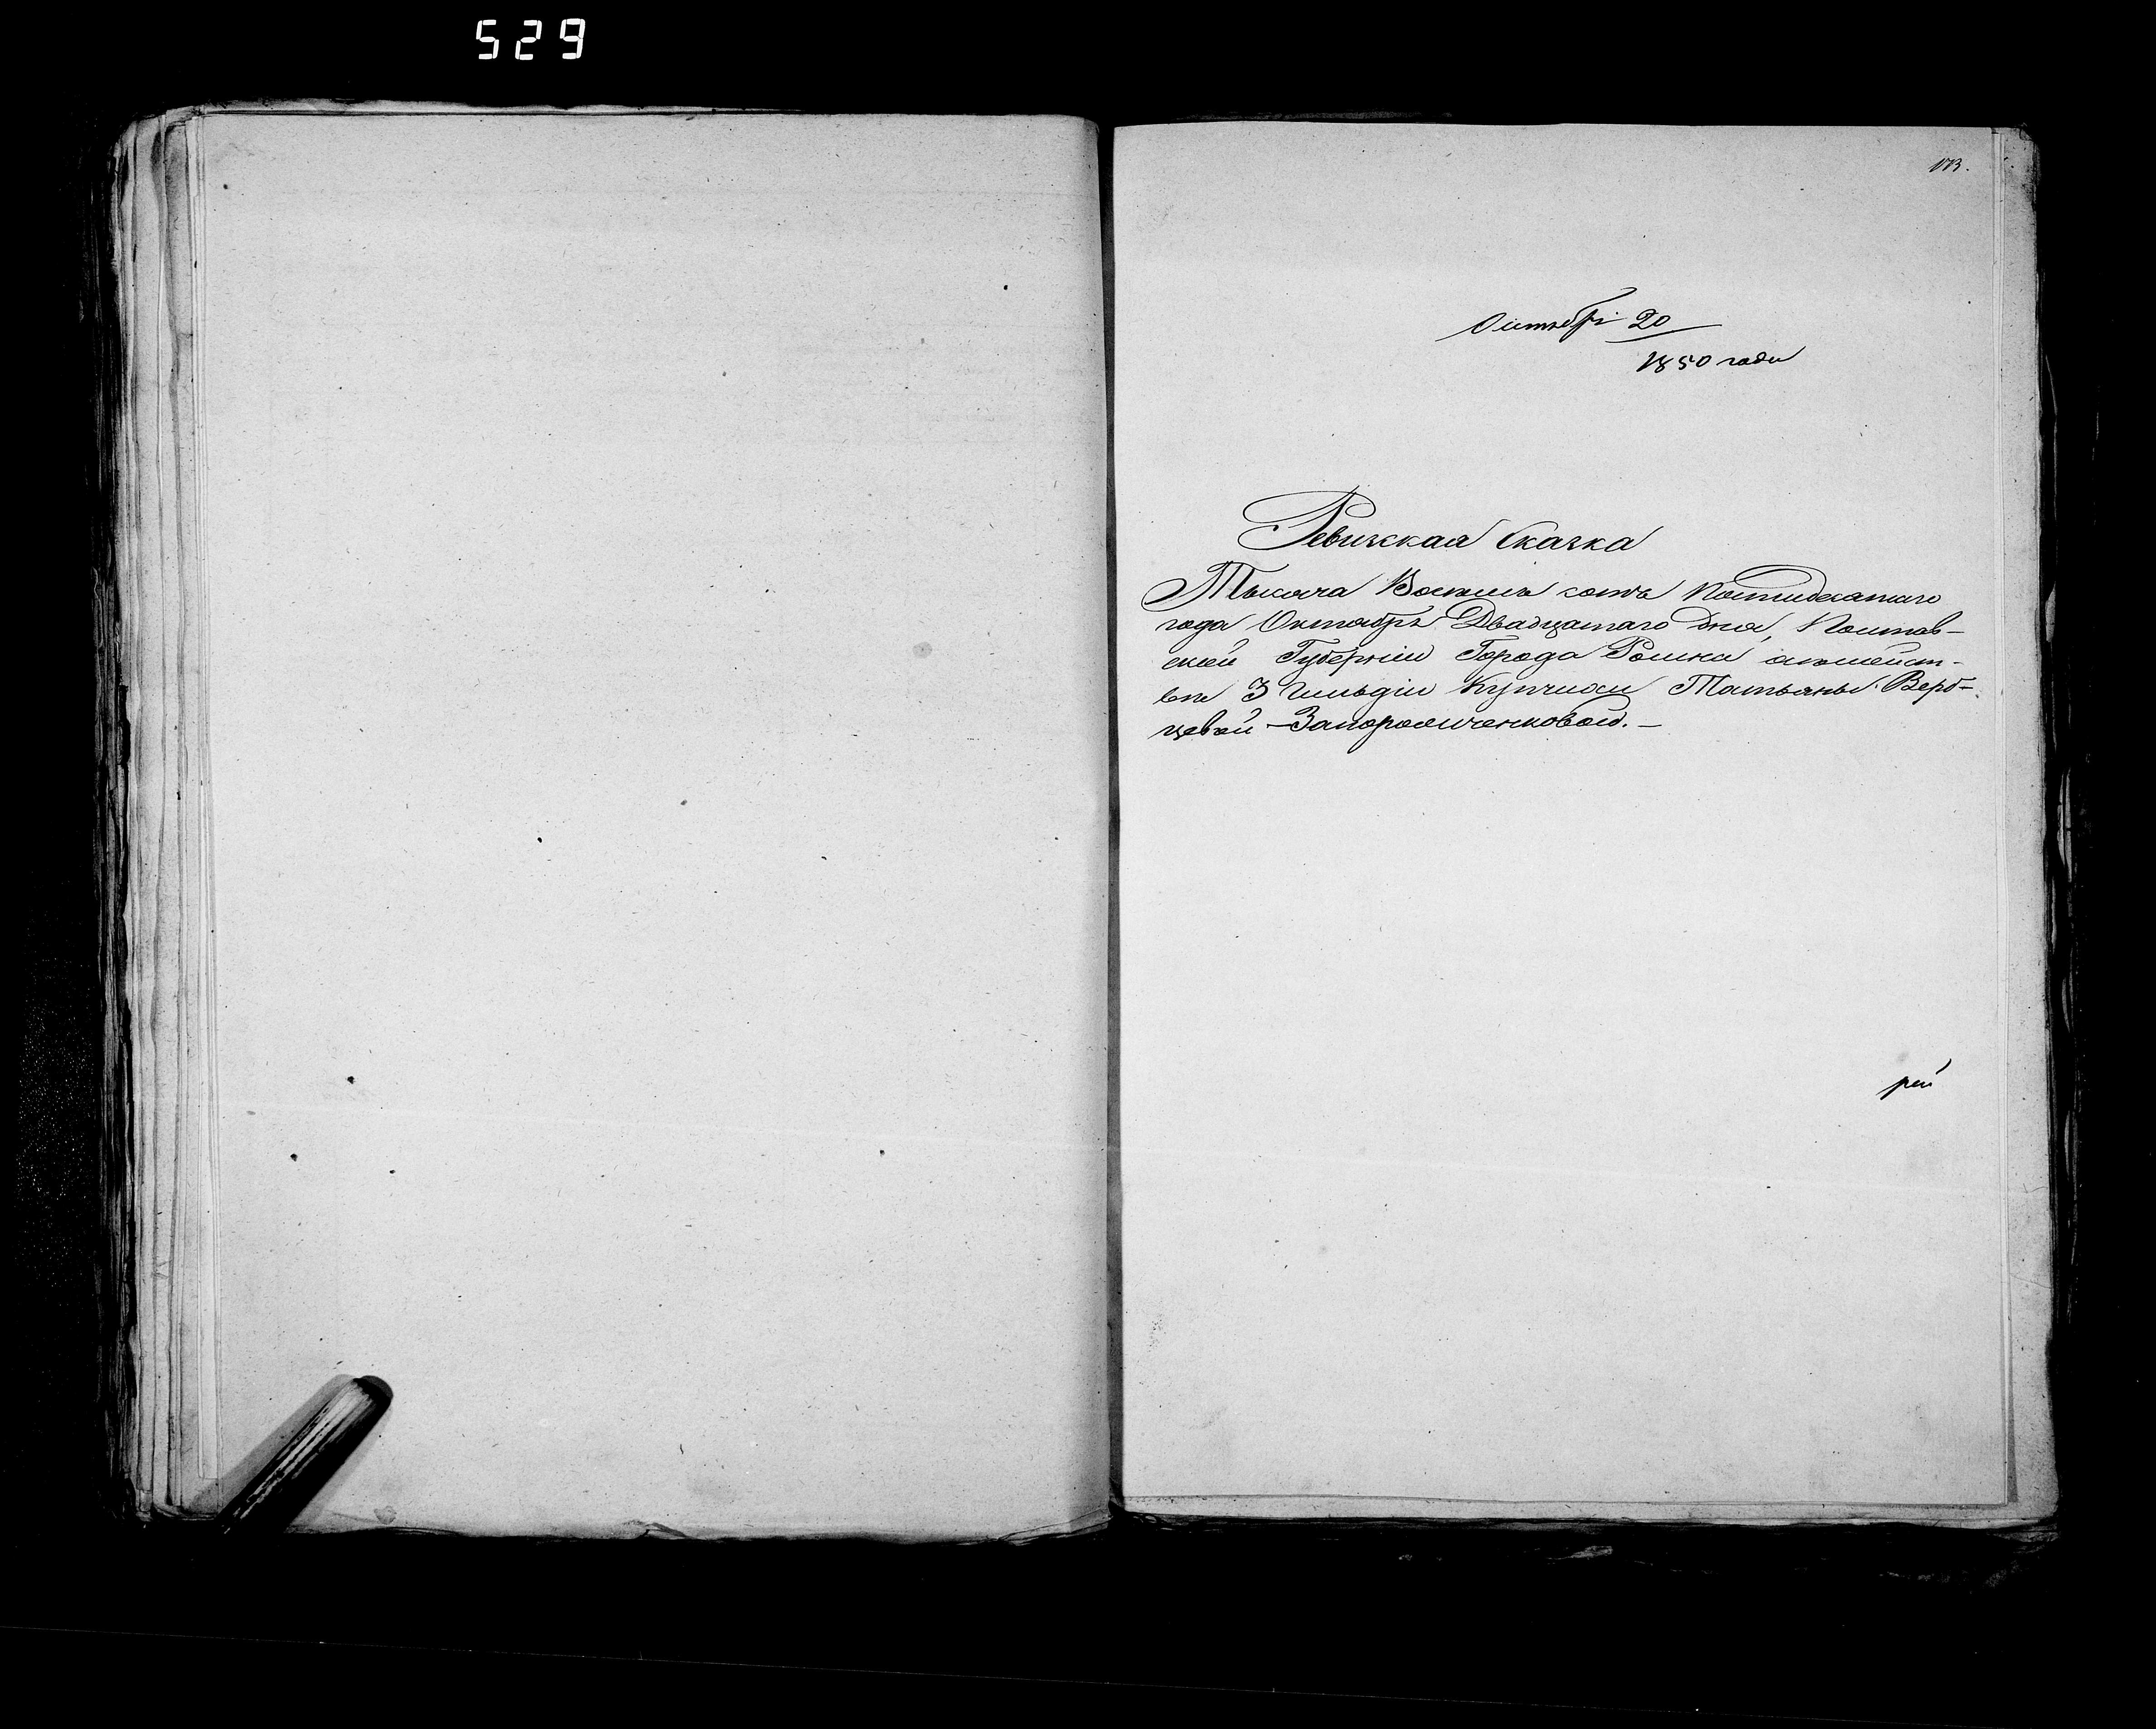 529
173.
Октября 20
1850 года
Ревизская Сказка
Тысяча Восемь сотъ Пятидесятаго
года Октября Двадцатаго дня, Полтав-
ской Губерніи Города Ромна
3 Гильдіи Купчихи Татьяны Верб-
цевой - Запорожченковой. -